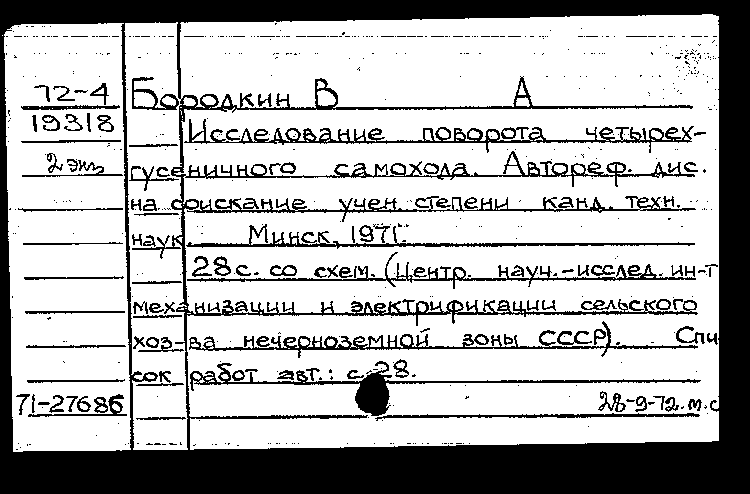 72-4 Бородкин В А
19318 Исследование поворота четырех-
2 экз гусеничного самохода. Автореф. дис.
на соискание учен. степени канд. техн.
наук. Минск, 1971г.
28 с. со схем. (Центр. науч.-исслед. ин-т
механизации и электрификации сельского
хоз-ва нечерноземной зоны СССР). Спи
сок работ авт.: с. 28.
71-27686 28-9-72. м.с